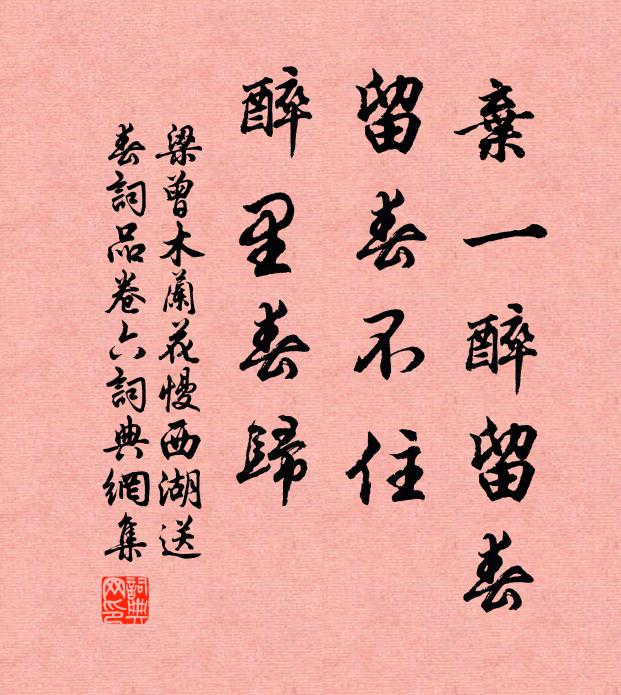 棄一醉留春
留春不住
醉里春歸
梁曾木蘭花慢西湖送
春詞品卷六詞典網集
詞典
网印